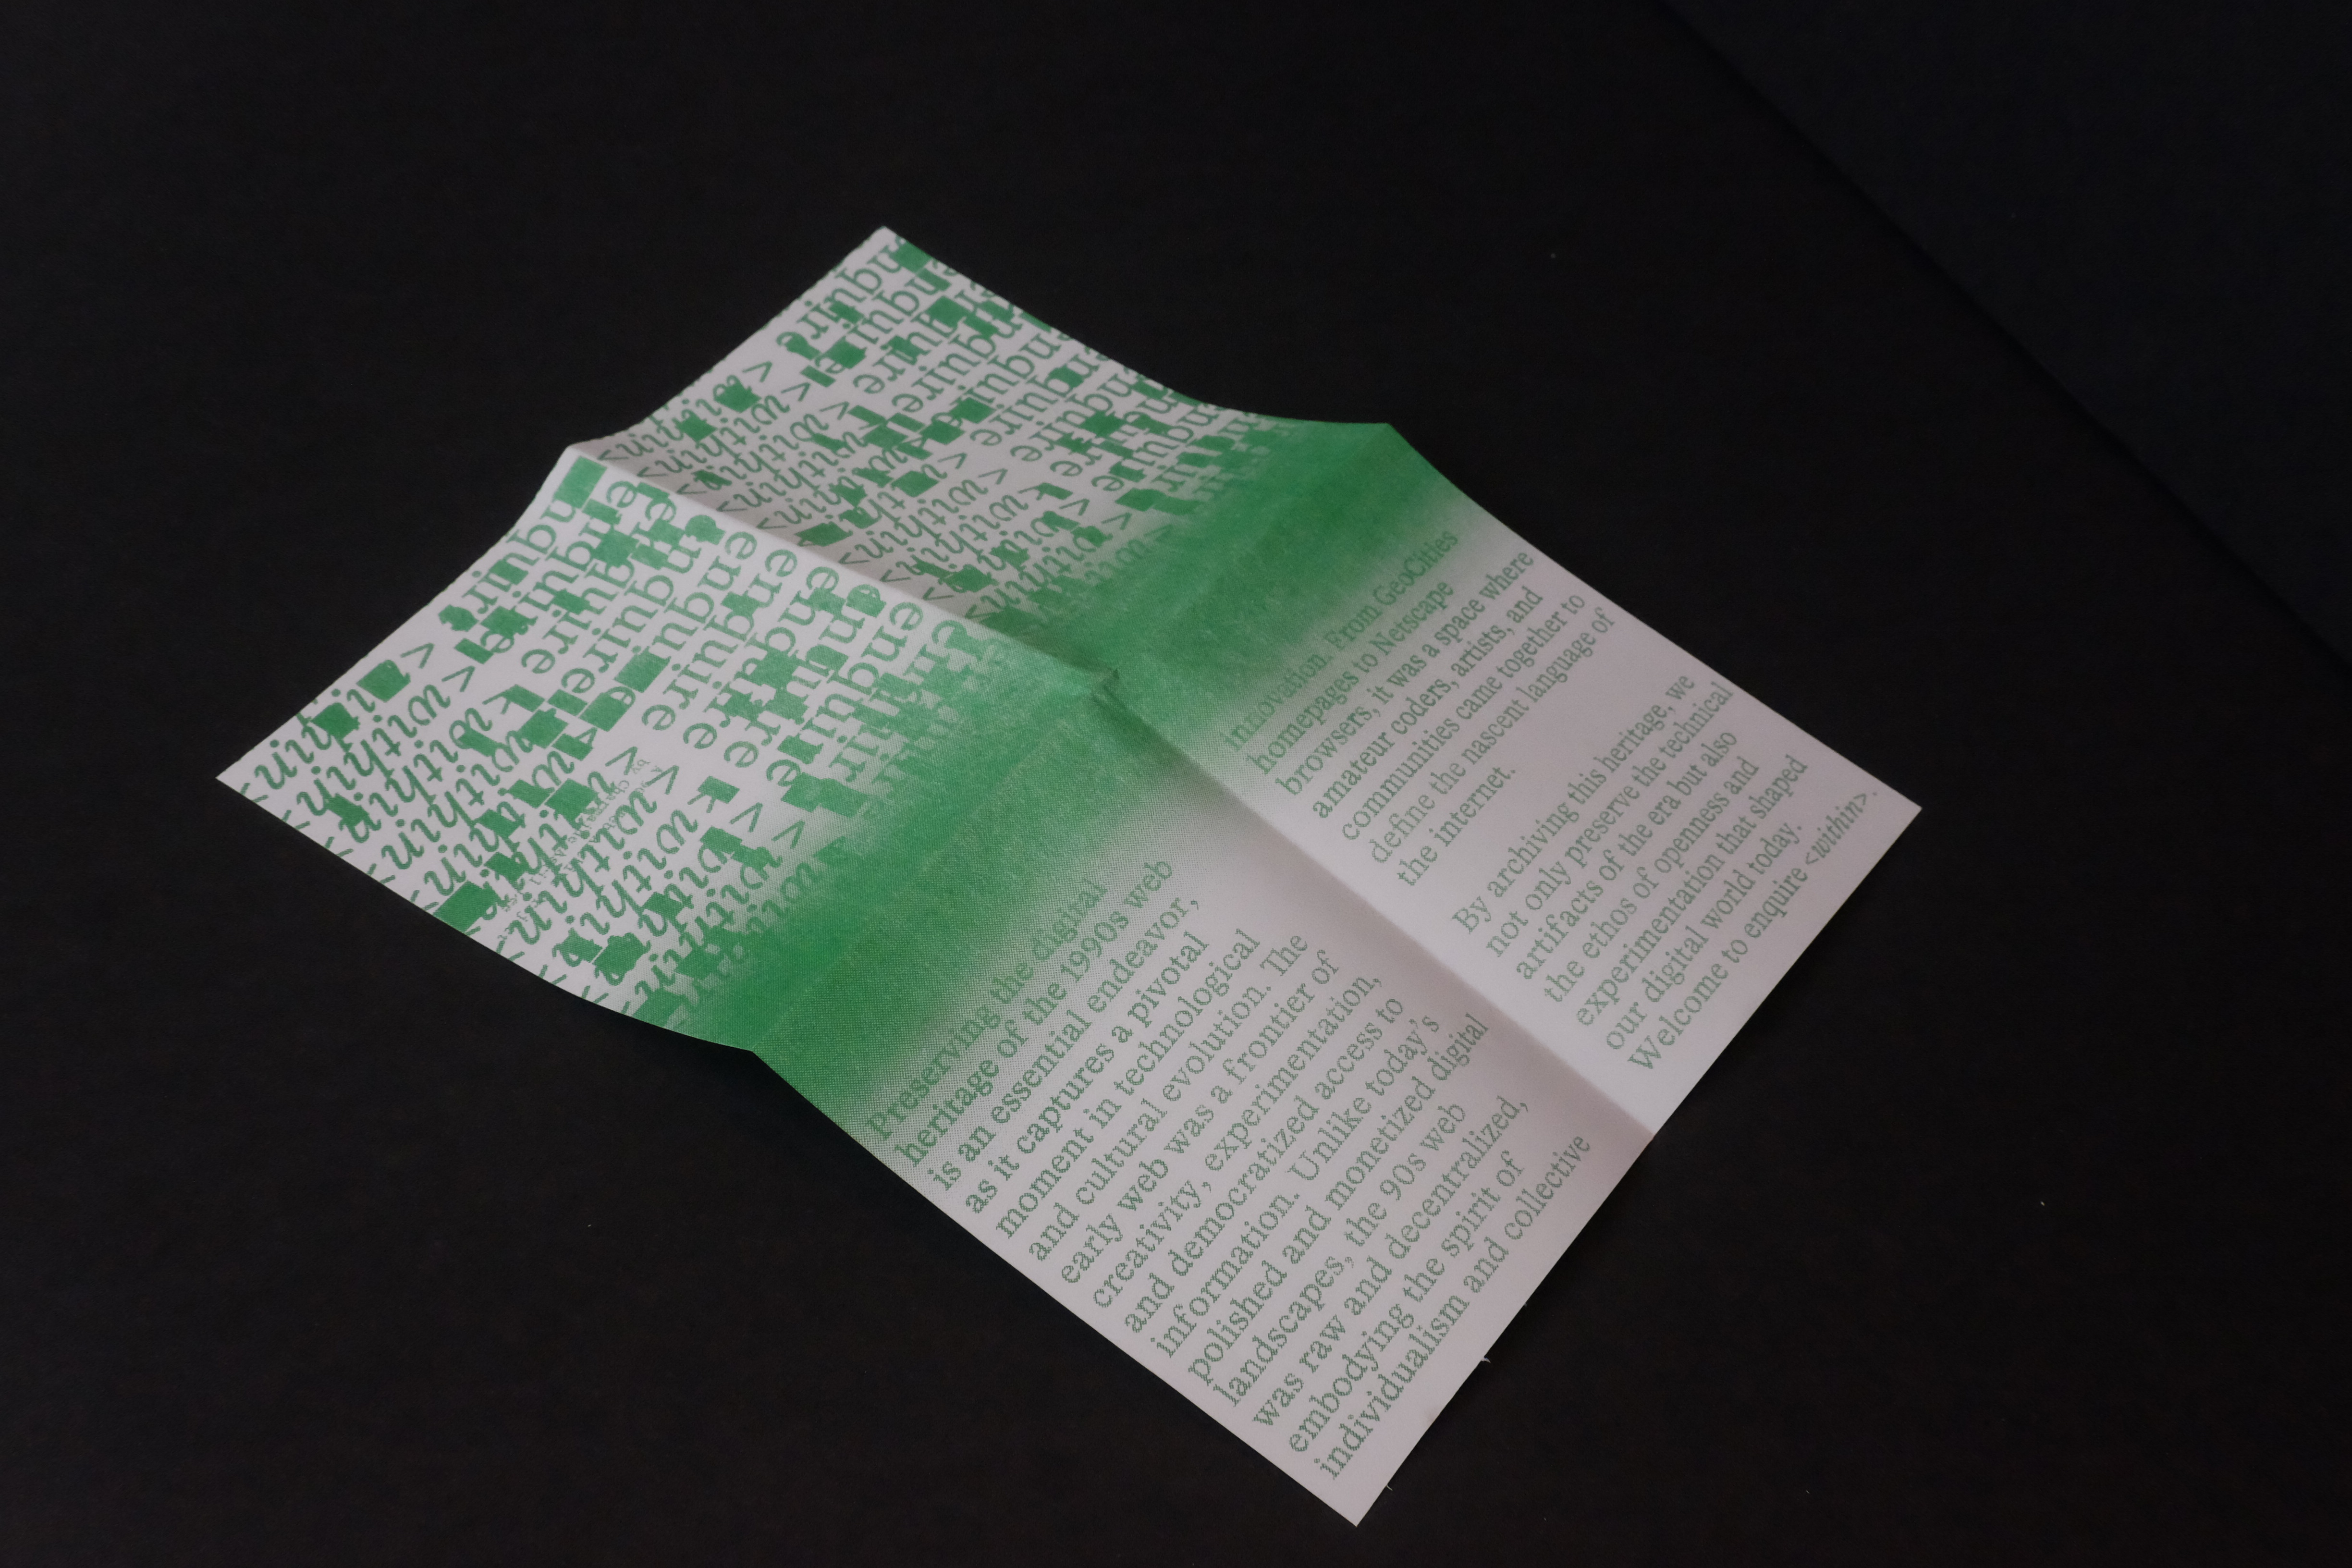 enquire
<within>
Preserving the digital
heritage of the 1990s web
is an essential endeavor,
as it captures a pivotal
moment in technological
and cultural evolution. The
early web was a frontier of
creativity, experimentation,
and democratized access to
information. Unlike today's
polished and monetized digital
landscapes, the 90s web
was raw and decentralized,
embodying the spirit of
individualism and collective
innovation. From GeoCities
homepages to Netscape
browsers, it was a space where
amateur coders, artists, and
communities came together to
define the nascent language of
the internet.
By archiving this heritage, we
not only preserve the technical
artifacts of the era but also
the ethos of openness and
experimentation that shaped
our digital world today.
Welcome to enquire <within>.